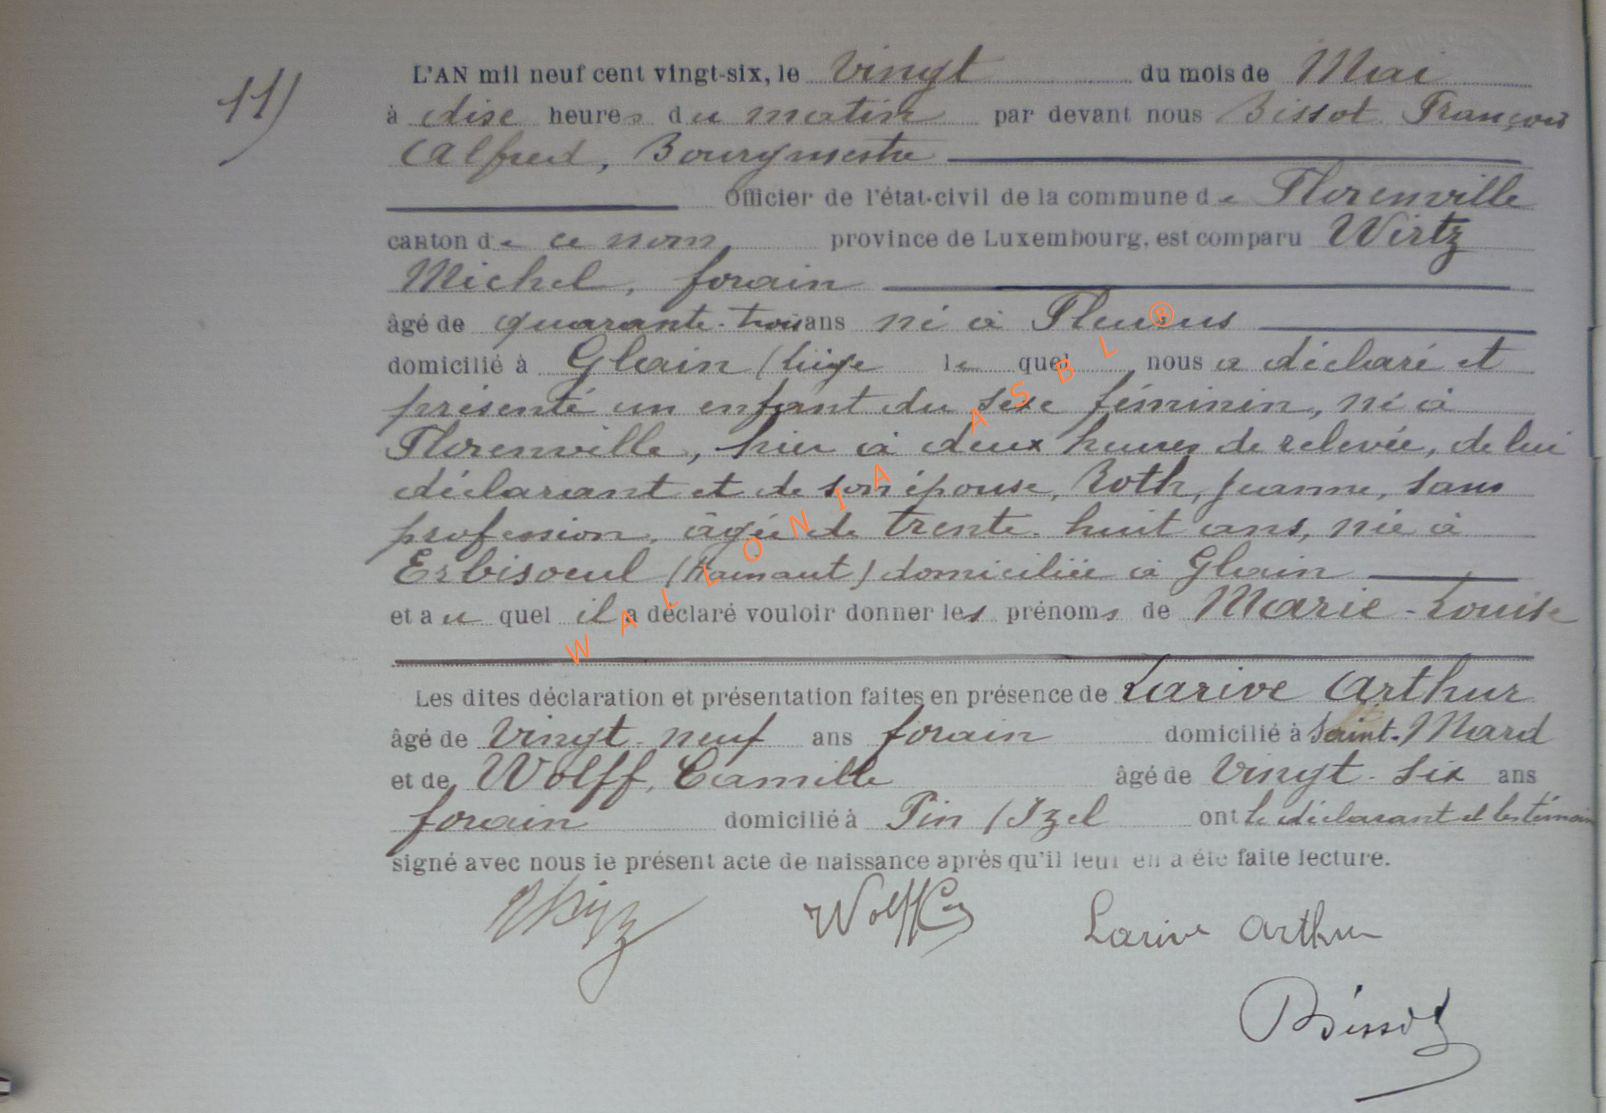 11)
L'AN mil neuf cent vingt-six, le vingt du mois de Mai
à dise heures du matin par devant nous Bissot François
Alfred, Bourgmestre
Officier de l'état-civil de la commune de Florenville
canton de ce nom, province de Luxembourg, est comparu Wirtz
Michel, forain
âgé de quarante-trois ans né à Fleurus
domicilié à Glain (Liége lequel nous a déclaré et
présenté un enfant du sexe féminin, né à
Florenville, hier à deux heures de relevée, de lui
déclarant et de son épouse, Roth, Jeanne, sans
profession, âgée de trente-huit ans, née à
Erbisoeul (Hainaut) domiciliée à Glain
et auquel il a déclaré vouloir donner les prénoms de Marie-Louise
Les dites déclaration et présentation faites en présence de Larive Arthur
âgé de vingt-neuf ans forain domicilié à Saint-Mard
et de Wolff, Camille âgé de vingt-six ans
forain domicilié à Pin (Izel ont le déclarant et les témoins
signé avec nous le présent acte de naissance après qu'il leur en a été faite lecture.
Wolff Larive Arthur
Bissot
WALLONIA ASBL ®